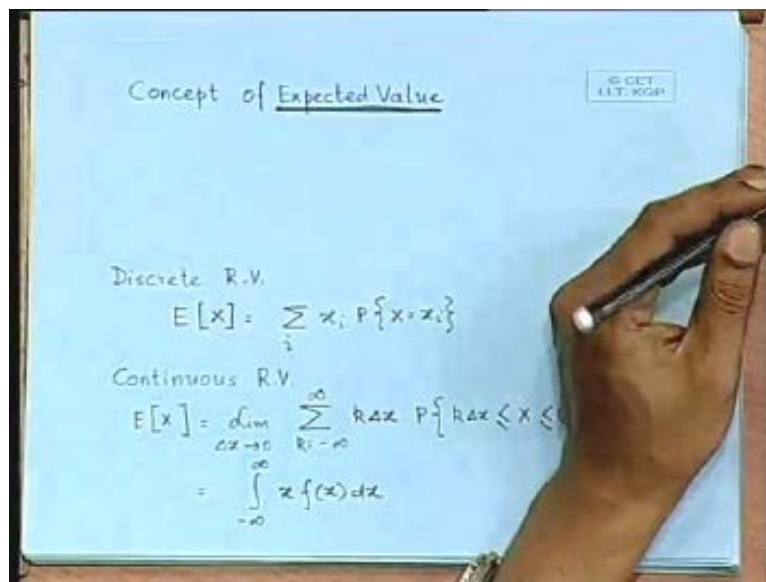 Concept of Expected Value
© CET
I.I.T. KGP
Discrete R.V.
E[X] = ∑ xᵢ P{X=xᵢ}
i
Continuous R.V.
∞
E[X] = lim ∑ kΔx P{kΔx ≤ X ≤
Δx→0 k=-∞
∞
= ∫ x f(x) dx
-∞